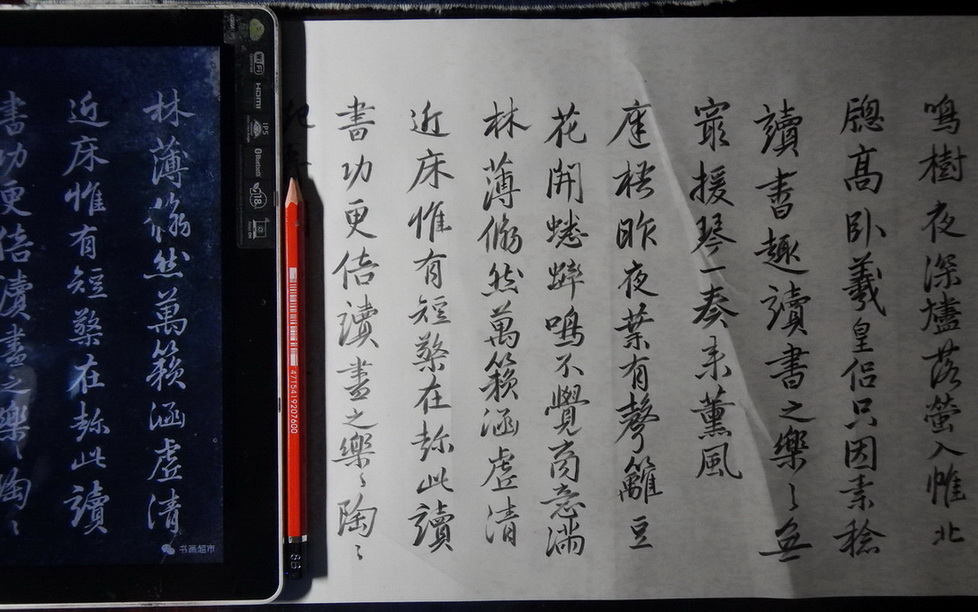 鳴樹夜深爐落螢入帷北
牕高臥羲皇侣只因素稔
讀書趣讀書之樂〻無
窮援琴一奏来薰風
庭梧昨夜葉有聲籬豆
花開蟋蟀鳴不覺商意滿
林薄翛然萬籟涵虚清
近床惟有短檠在趁此讀
書功更倍讀書之樂〻陶
〻
林薄翛然萬籟涵虚清
近床惟有短檠在趁此讀
書功更倍讀書之樂〻陶〻
书画超市
WiFi
HDMI
IPS
Bluetooth
4715419207600
6B